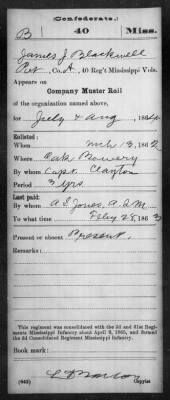 (Confederate.)
B 40 Miss.
James J Blackwell
Pvt, Co. A, 40 Reg't Mississippi Vols.
Appears on
Company Muster Roll
of the organization named above,
for July & Aug, 1864.
Enlisted:
When Mch 13, 1862
Where Oak Bowery
By whom Capt. Clayton
Period 3 yrs
Last paid:
By whom A. S. Jones, A.Q.M.
To what time Feby 28, 1863
Present or absent Present.
Remarks:
This regiment was consolidated with the 3d and 31st Regiments Mississippi Infantry about April 9, 1865, and formed the 3d Consolidated Regiment Mississippi Infantry.
Book mark:
(642)
Copyist